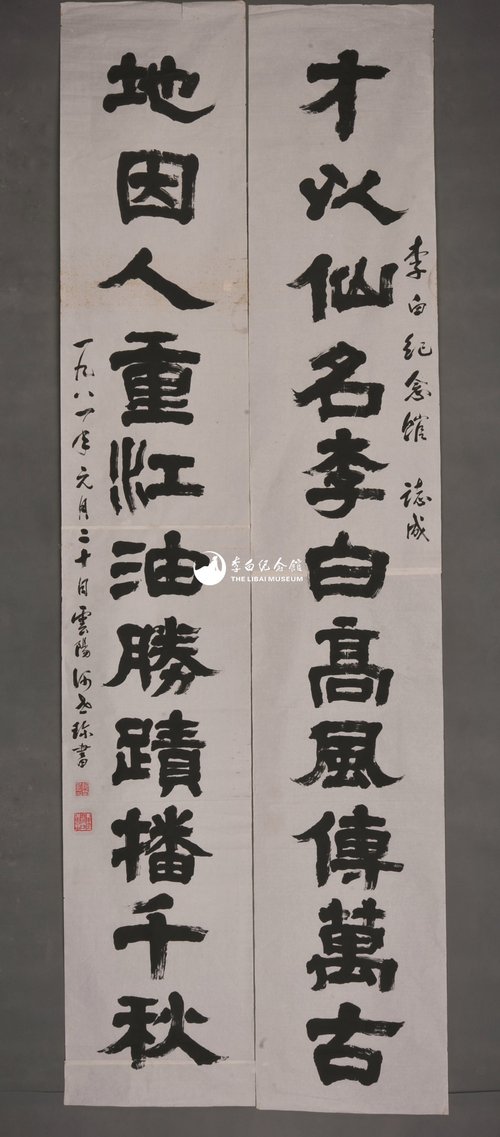 李白纪念馆 誌成
才以仙名李白高風傳萬古
地因人重江油勝蹟播千秋
一九八一年元月二十日雲陽
書
李白纪念馆
THE LIBAI MUSEUM